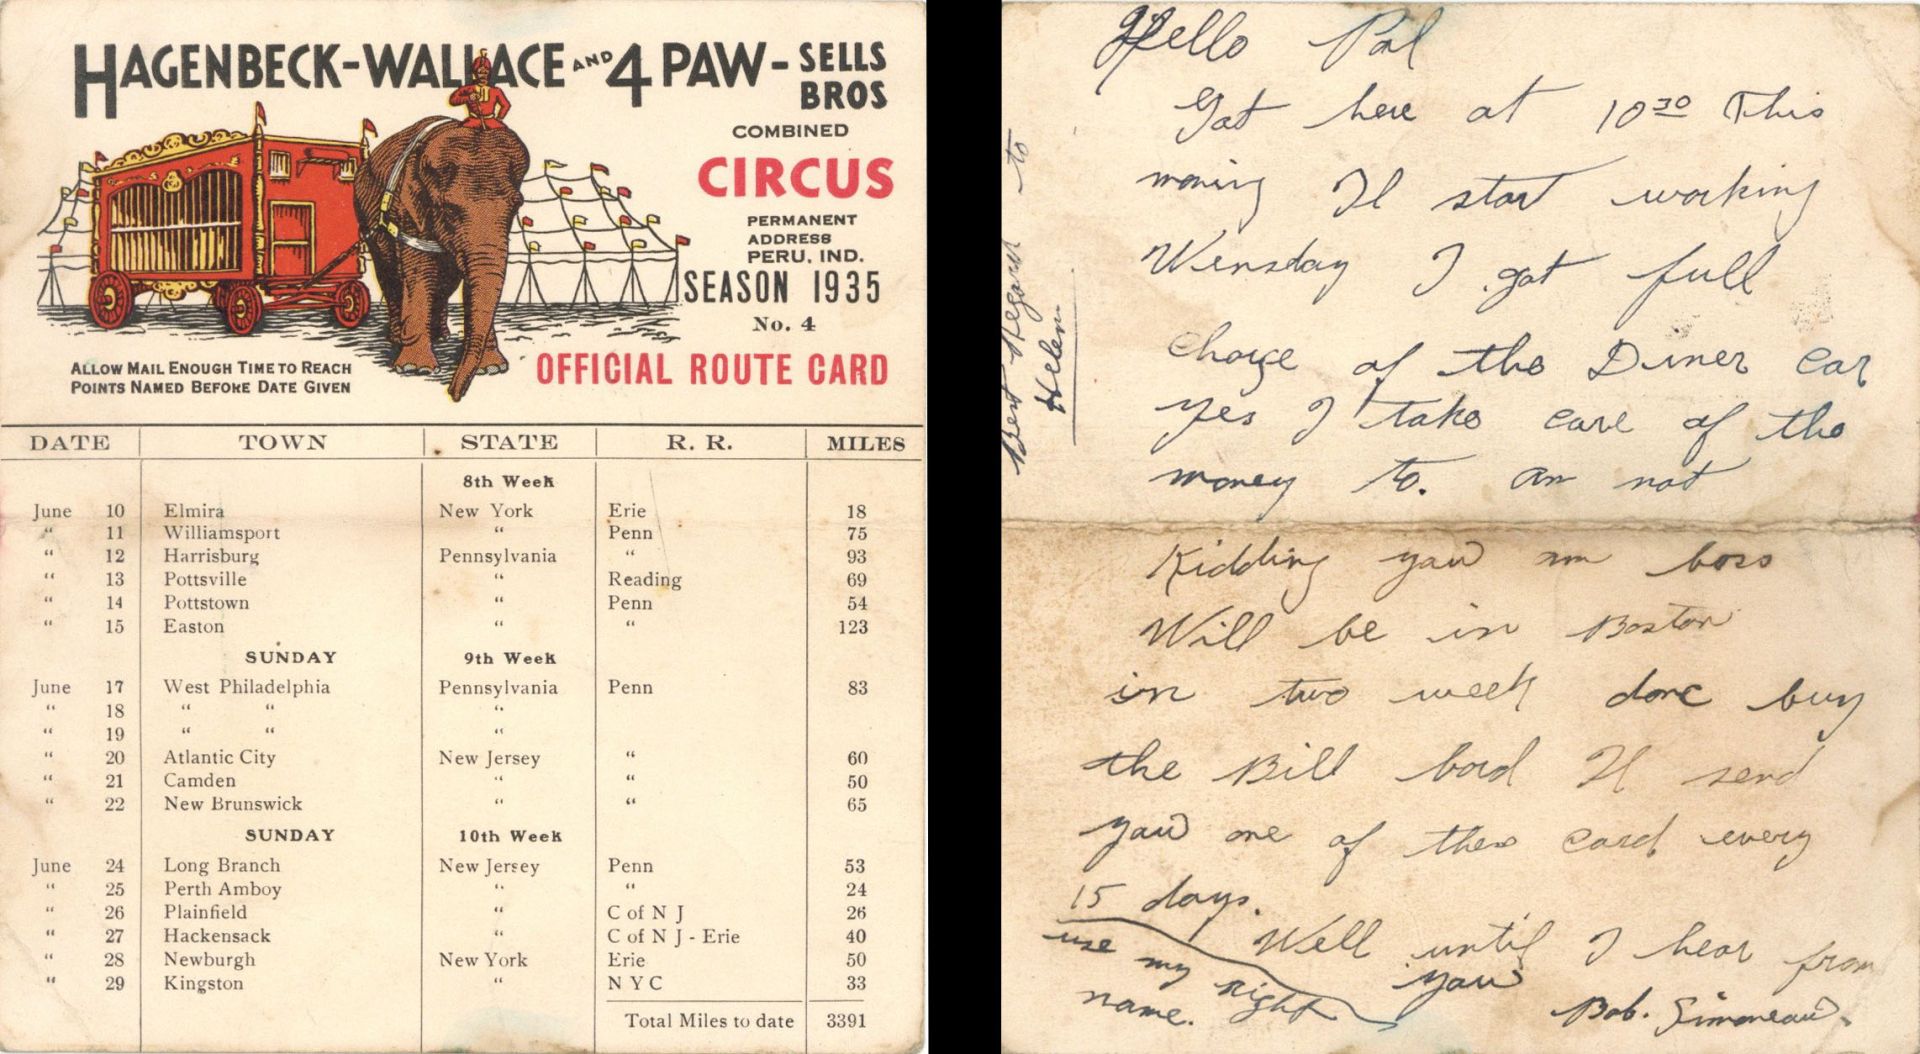 HAGENBECK-WALLACE AND 4 PAW-SELLS BROS
COMBINED
CIRCUS
PERMANENT
ADDRESS
PERU, IND.
SEASON 1935
No. 4
OFFICIAL ROUTE CARD
ALLOW MAIL ENOUGH TIME TO REACH
POINTS NAMED BEFORE DATE GIVEN
DATE TOWN STATE R. R. MILES
8th Week
June 10 Elmira New York Erie 18
“ 11 Williamsport “ Penn 75
“ 12 Harrisburg Pennsylvania “ 93
“ 13 Pottsville “ Reading 69
“ 14 Pottstown “ Penn 54
“ 15 Easton “ “ 123
SUNDAY 9th Week
June 17 West Philadelphia Pennsylvania Penn 83
“ 18 “ “ “
“ 19 “ “ “
“ 20 Atlantic City New Jersey “ 60
“ 21 Camden “ “ 50
“ 22 New Brunswick “ “ 65
SUNDAY 10th Week
June 24 Long Branch New Jersey Penn 53
“ 25 Perth Amboy “ “ 24
“ 26 Plainfield “ C of N J 26
“ 27 Hackensack “ C of N J - Erie 40
“ 28 Newburgh New York Erie 50
“ 29 Kingston “ N Y C 33
Total Miles to date 3391
Hello Pal
Got here at 10 30 This
moning Il start working
Wensday I got full
charge of the Diner car
yes I take care of the
money to. am not
Kidding yau um boss
Will be in Boston
in two week donc buy
the Bill bord Il send
yau one of thes card every
15 days.
Well until I hear from
yau
Bob. Simoneau.
use my right
name.
Best Regard to
Helen